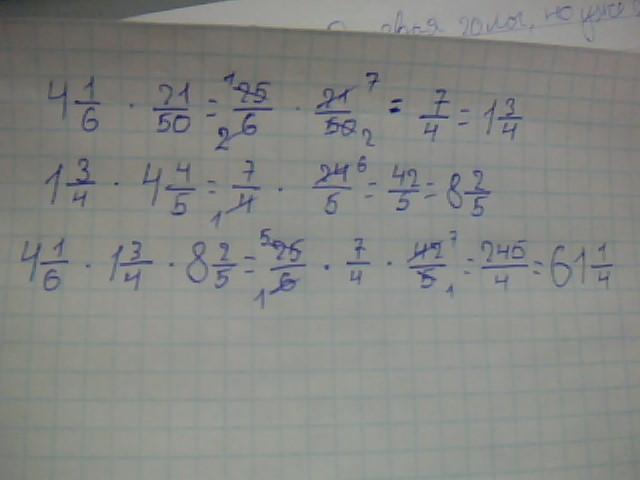 голос, но ума
4 1/6 · 21/50 = 25/6 · 21/50 = 7/4 = 1 3/4
1 3/4 · 4 4/5 = 7/4 · 24/5 = 42/5 = 8 2/5
4 1/6 · 1 3/4 · 8 2/5 = 25/6 · 7/4 · 42/5 = 245/4 = 61 1/4